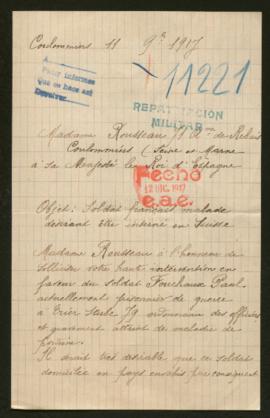 Coulommiers 11 9bre 1917
A
Para informes
que se hace así
Devolver
11221
REPATRIACION
MILITAR
Madame Rousseau 79 de Relais
Coulommiers (Seine et Marne
à Sa Majesté le Roi d'Espagne
Fecho
12 DIC. 1917
e.a.e.
Objet: Soldat français malade
désirant être interné en Suisse
Madame Rousseau a l'honneur de
solliciter votre haute intervention en
faveur du soldat Fourchaux Paul
actuellement prisonnier de guerre
à Trier Stube 79 ordonnance des officiers
et gravement atteint de maladie de
poitrine.
Il serait très désirable que ce soldat
domicilié en pays envahis par conséquent